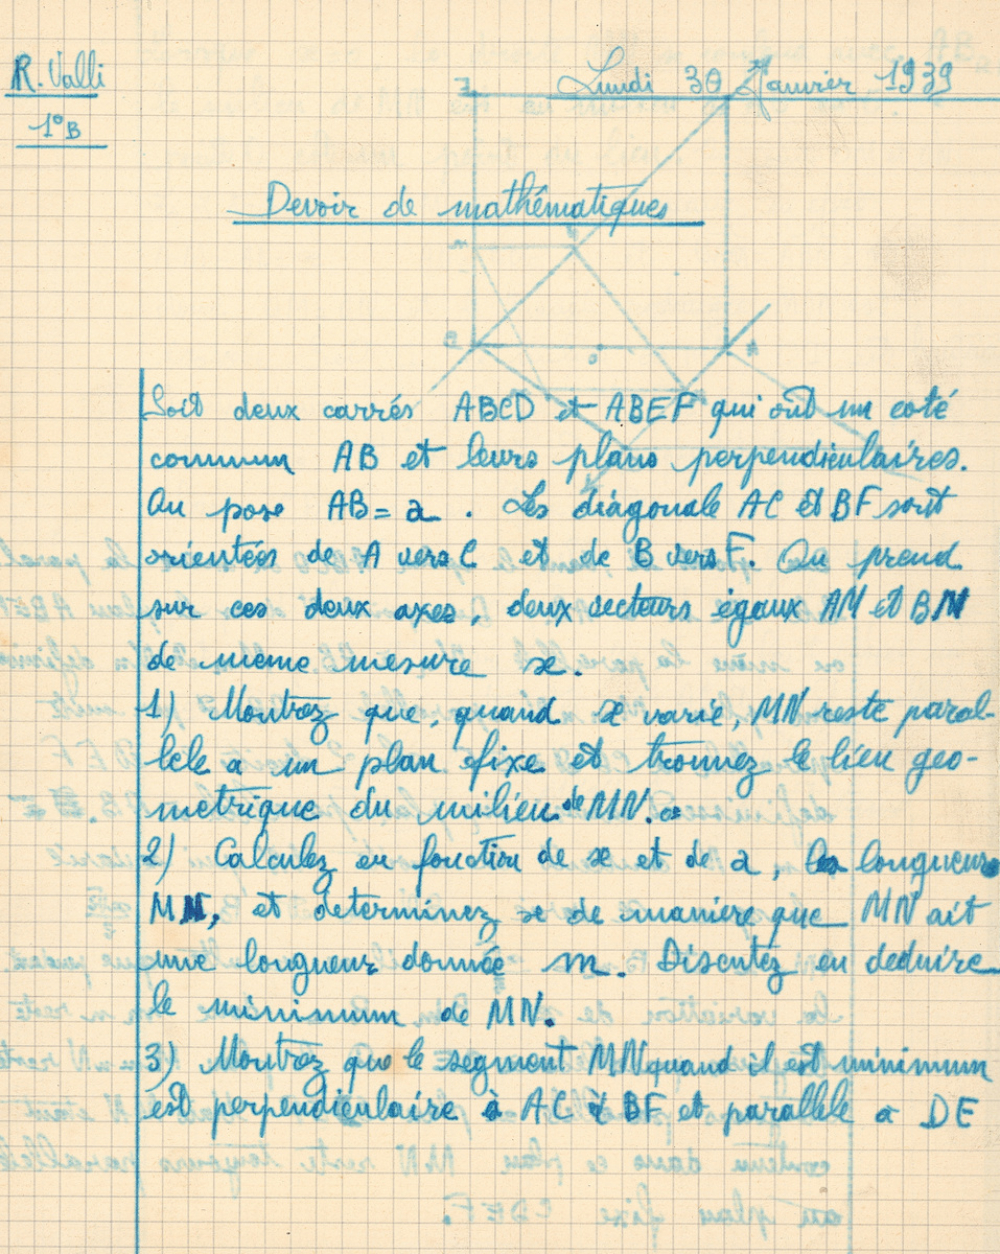 R. Valli
Lundi 30 Janvier 1939
1° B
Devoir de mathématiques
Soit deux carrés ABCD et ABEF qui ont un coté
commun AB et leurs plans perpendiculaires.
On pose AB = a . Les diagonale AC et BF sont
orientées de A vers C et de B vers F. On prend
sur ces deux axes, deux vecteurs égaux AM et BN
de meme mesure x.
1) Montrez que, quand x varie, MN reste paral-
lele a un plan fixe et trouvez le lieu geo-
metrique du milieu de MN.
2) Calculez en fonction de x et de a, les longueurs
MN, et determinez x de maniere que MN ait
une longueur donnée m. Discutez en deduire
le minimum de MN.
3) Montrez que le segment MN quand il est minimum
est perpendiculaire à AC & BF et parallele a DE